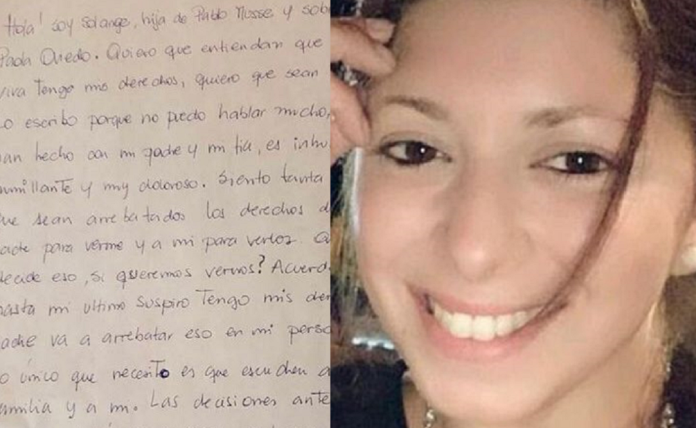 Hola! Soy Solange, hija de Pablo Musse y sob
Paola Oviedo. Quiero que entiendan que
viva Tengo mis derechos, quiero que sean
Lo escribo porque no puedo hablar mucho,
an hecho con mi padre y mi tia, es inhu
umillante y muy doloroso. Siento tanta
ue sean arrebatados los derechos d
adre para verme y a mi para verlos.
decide eso, si queremos vernos? Acuerd
hasta mi ultimo suspiro Tengo mis der
adie va a arrebatar eso en mi perso
o único que necesito es que escuchen a
amilia y a mi. Las decisiones ante